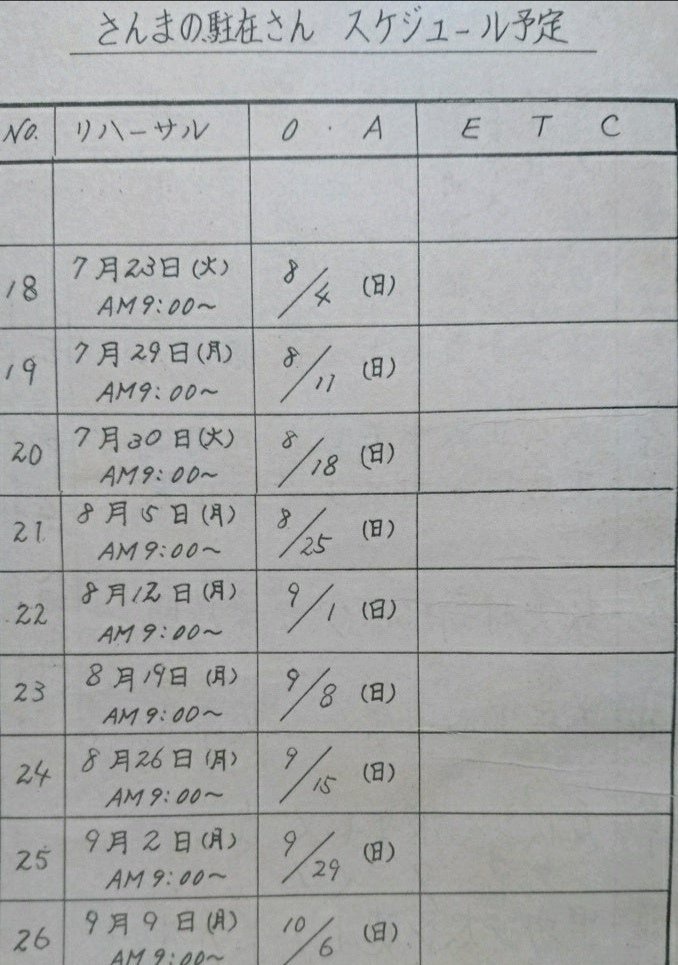 さんまの駐在さん スケジュール予定
NO. リハーサル O・A ETC
18 7月23日(火) 8/4 (日)
AM9:00~
19 7月29日(月) 8/11 (日)
AM9:00~
20 7月30日(火) 8/18 (日)
AM9:00~
21 8月5日(月) 8/25 (日)
AM9:00~
22 8月12日(月) 9/1 (日)
AM9:00~
23 8月19日(月) 9/8 (日)
AM9:00~
24 8月26日(月) 9/15 (日)
AM9:00~
25 9月2日(月) 9/29 (日)
AM9:00~
26 9月9日(月) 10/6 (日)
AM9:00~